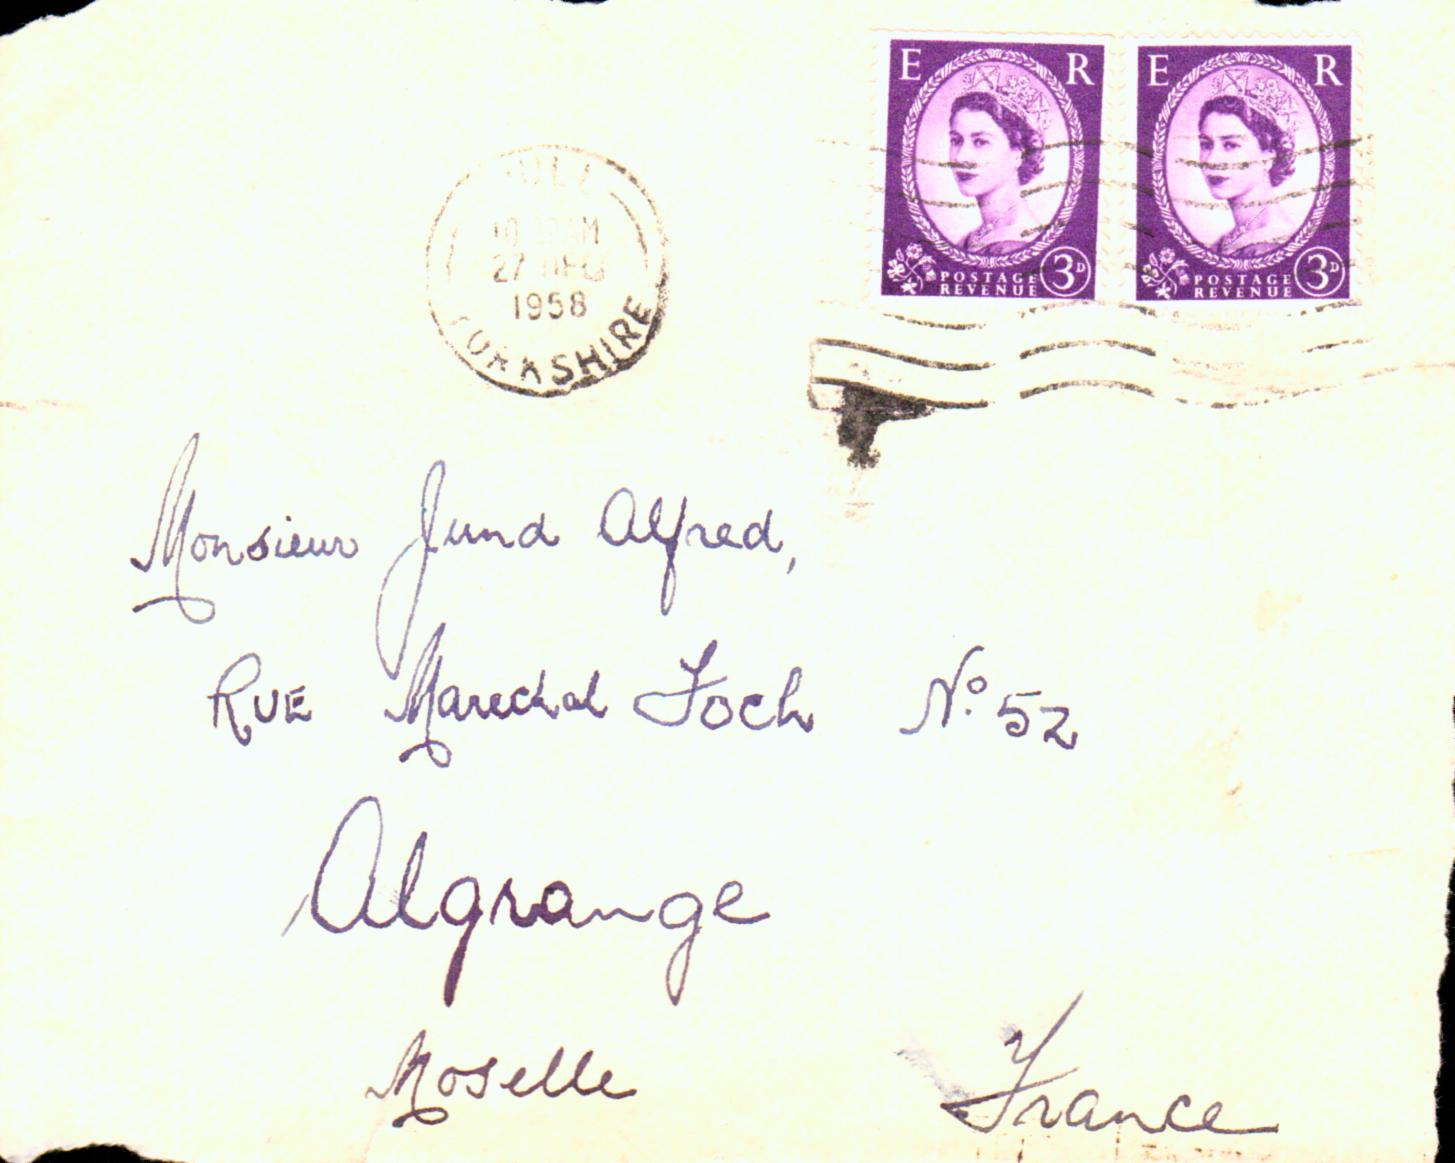 E R
POSTAGE
REVENUE
3D
E R
POSTAGE
REVENUE
3D
27
1958
YORKSHIRE
Monsieur Jund Alfred,
RUE Marechal Foch No 52
Algrange
Moselle
France